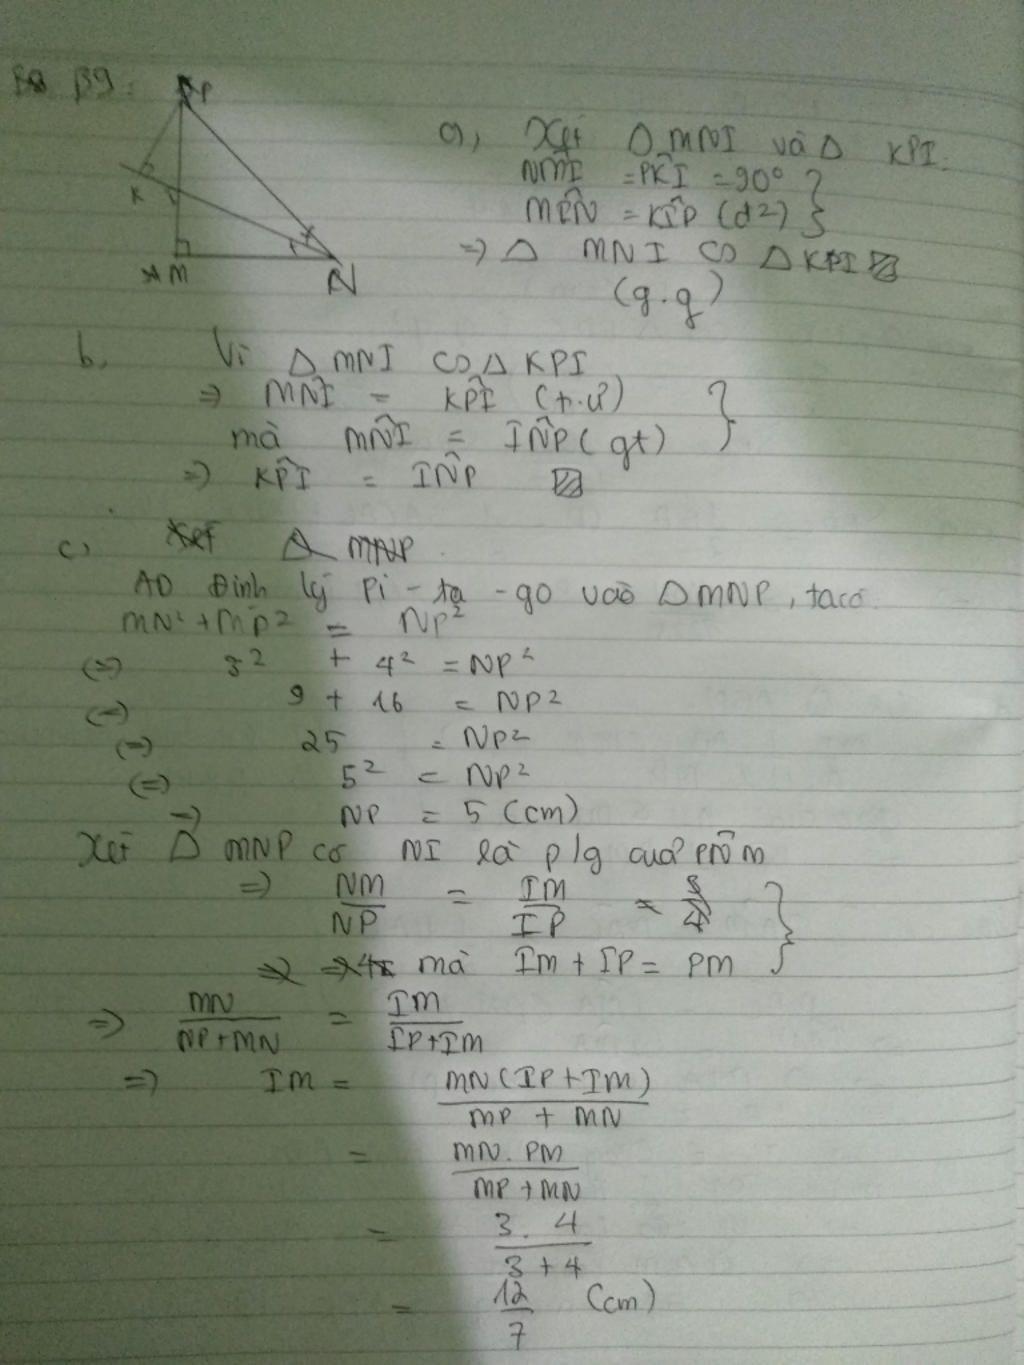 B9:
P
K
M
N
a, Xét Δ MNI và Δ KPI.
NM̂I = PK̂I = 90°
MPN = KÎP (đ2)
=> Δ MNI ∽ Δ KPI
(g.g)
b, Vì Δ MNI ∽ Δ KPI
=> MN̂I = KP̂I (t.ư)
mà MN̂I = IN̂P (gt)
=> KP̂I = IN̂P
c, Xét Δ MNP.
AD Định lý Pi-ta-go vào Δ MNP, ta có.
MN² + MP² = NP²
(=) 3² + 4² = NP²
(=) 9 + 16 = NP²
(=) 25 = NP²
(=) 5² = NP²
=> NP = 5 (cm)
Xét Δ MNP có NI là p/g của PN̂M
=> NM/NP = IM/IP
mà IM + IP = PM
=> MN/(NP+MN) = IM/(IP+IM)
=> IM = MN(IP+IM)/(MP + MN)
= MN.PM/(MP+MN)
= 3.4/(3+4)
= 12/7 (cm)